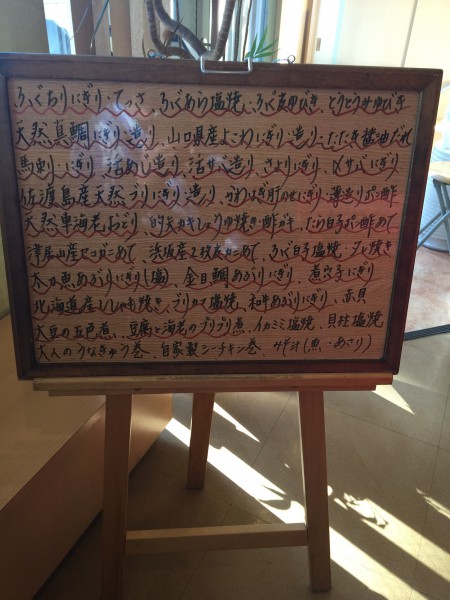 ふぐちりにぎり、てっさ、ふぐあら塩焼、ふぐ皮
天然真鯛にぎり、造り、山口県産よこわにぎり、造り、たたき醤油だれ
馬刺し、にぎり、活あじ造り、活サバ造り、さよりにぎり、〆サバにぎり
佐渡島産天然ブリにぎり、造り、かわはぎ肝のせにぎり、薄造りポン酢
天然車海老おどり、的矢カキしょうゆ焼き、酢ガキ、たら白子ポン酢あて
津居山産セコガニあて、浜坂産2枚皮カニあて、ふぐ白子塩焼・タレ焼き
太刀魚あぶりにぎり(塩)、金目鯛あぶりにぎり、煮穴子にぎり
北海道産ししゃも焼き、ブリカマ塩焼、和牛あぶりにぎり、赤貝
大豆の五色煮、豆腐と海老のプリプリ煮、イカミミ塩焼、貝柱塩焼
大人のうなきゅう巻、自家製シーチキン巻、みそ汁(魚・あさり)